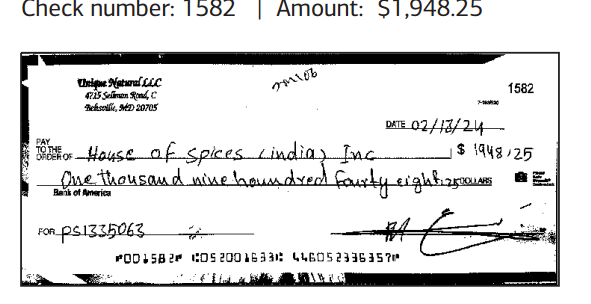 Check number: 1582 | Amount: $1,948.25
Unique Natural LLC
1582
4715 Sellman Road, C
Beltsville, MD 20705
DATE 02/13/24
PAY
TO THE
ORDER OF House of spices (india) Inc $ 1948.25
One thousand nine houndred fourty eight .25 DOLLARS
Bank of America
FOR PS1335063
⑈001582⑈ ⑆052001633⑆ 446052336357⑈